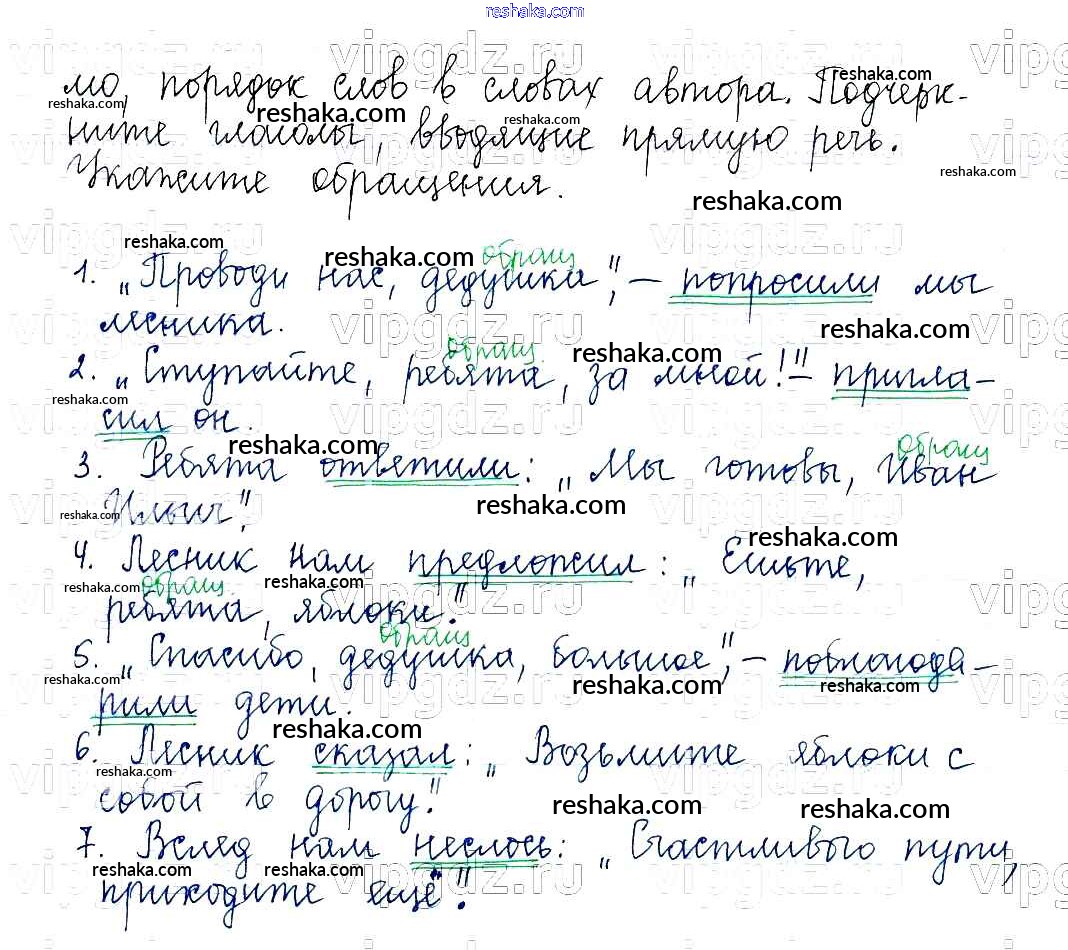 reshaka.com
мо, порядок слов в словах автора. Подчерк-
ните глаголы, вводящие прямую речь.
Укажите обращения.
обращ
1. „Проводи нас, дедушка", – попросили мы
лесника.
обращ
2. „Ступайте, ребята, за мной!" – пригла-
сил он.
обращ
3. Ребята ответили: „Мы готовы, Иван
Ильич".
4. Лесник нам предложил: „Ешьте,
обращ
ребята, яблоки."
обращ
5. „Спасибо, дедушка, большое", – поблагода-
рили дети.
6. Лесник сказал: „Возьмите яблоки с
собой в дорогу!"
7. Вслед нам неслось: „Счастливого пути,
приходите ещё"!